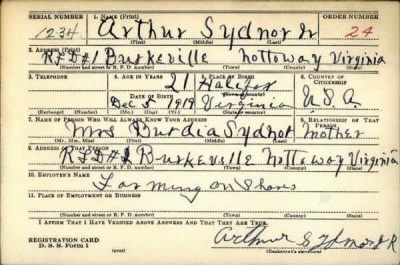 SERIAL NUMBER 1. NAME (Print) ORDER NUMBER
1234 Arthur Sydnor Jr 24
(First) (Middle) (Last)
2. ADDRESS (Print)
RFD#1 Burkeville Nottoway Virginia
(Number and street or R. F. D. number) (Town) (County) (State)
3. TELEPHONE 4. AGE IN YEARS 5. PLACE OF BIRTH 6. COUNTRY OF CITIZENSHIP
21 Halifax
(Town or county)
DATE OF BIRTH
Dec 5 1919 Virginia U.S.A.
(Exchange) (Number) (Mo.) (Day) (Yr.) (State or country)
7. NAME OF PERSON WHO WILL ALWAYS KNOW YOUR ADDRESS 8. RELATIONSHIP OF THAT PERSON
Mrs Burdia Sydnor Mother
(Mr., Mrs., Miss) (First) (Middle) (Last)
9. ADDRESS OF THAT PERSON
RFD#1 Burkeville Nottoway Virginia
(Number and street or R. F. D. number) (Town) (County) (State)
10. EMPLOYER'S NAME
Farming on Shares
11. PLACE OF EMPLOYMENT OR BUSINESS
(Number and street or R. F. D. number) (Town) (County) (State)
I AFFIRM THAT I HAVE VERIFIED ABOVE ANSWERS AND THAT THEY ARE TRUE.
REGISTRATION CARD
D. S. S. Form 1
Arthur Sydnor JR
(Registrant's signature)